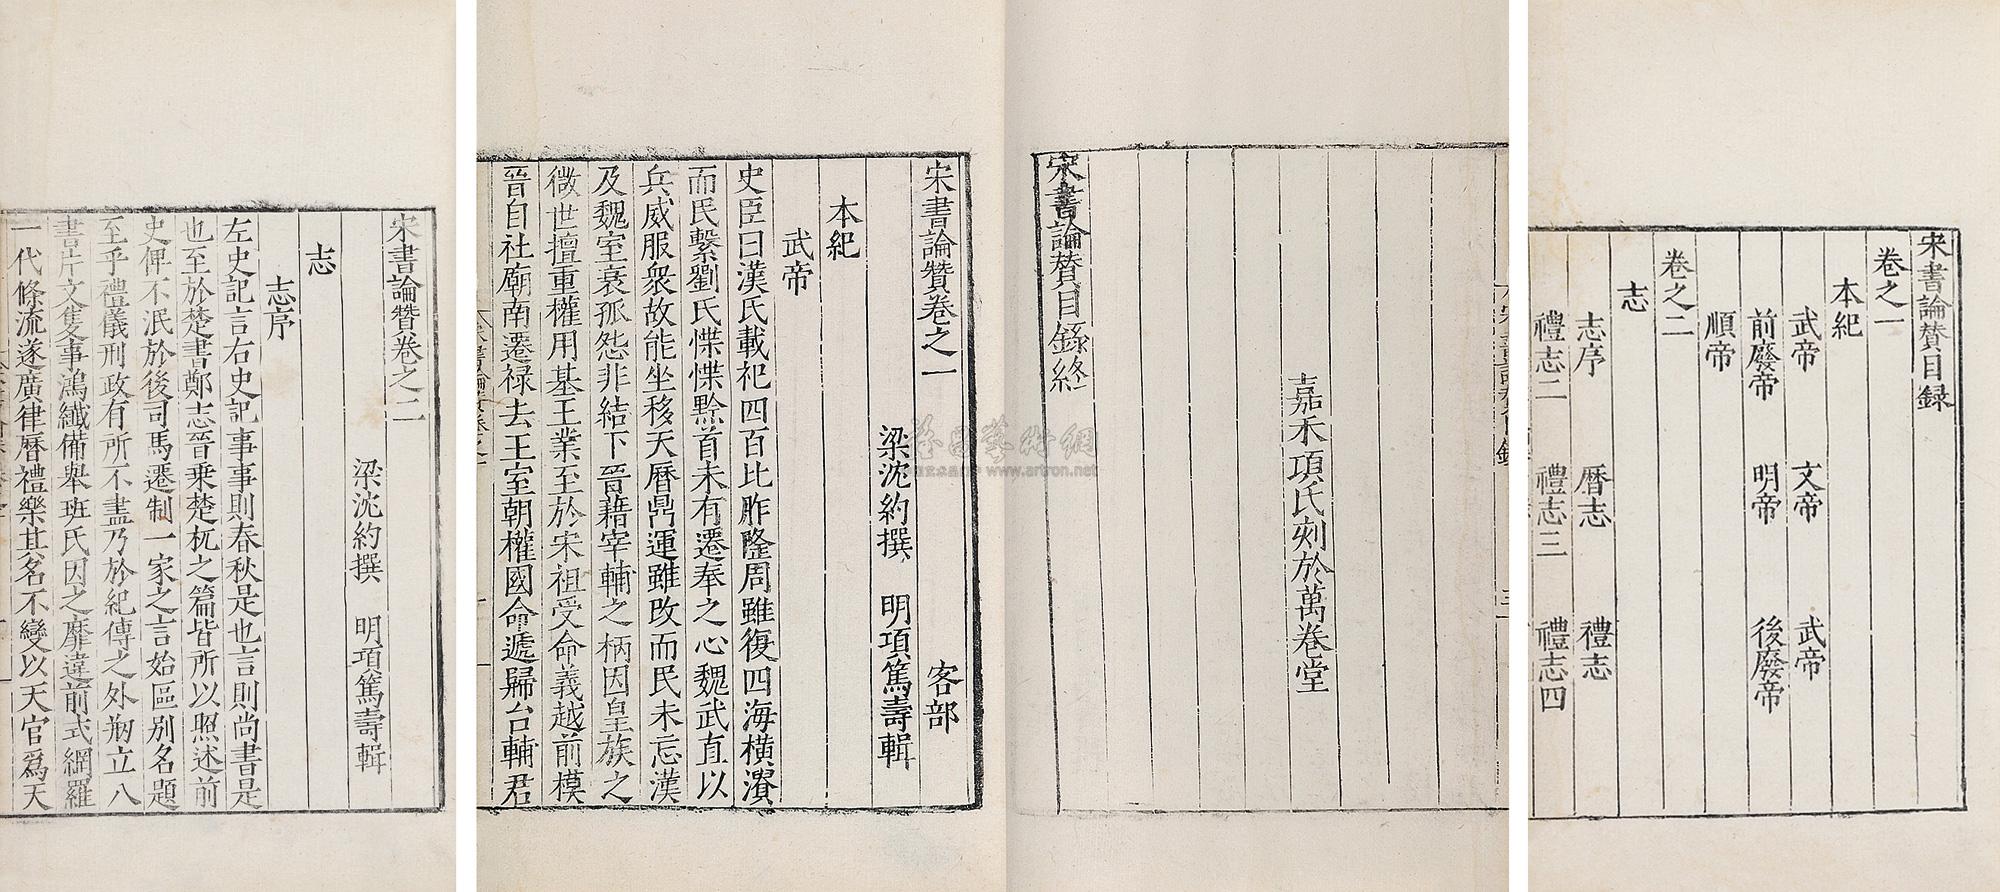 宋書論賛目録
卷之一
本紀
武帝 文帝 武帝
前廢帝 明帝 後廢帝
順帝
卷之二
志
志序 曆志 禮志
禮志二 禮志三 禮志四
嘉禾項氏刻於萬卷堂
宋書論賛目錄終
宋書論贊卷之一 客部
梁沈約撰 明項篤壽輯
本紀
武帝
史臣曰漢氏載祀四百比胙隆周雖復四海橫潰
而民繫劉氏惵惵黔首未有遷奉之心魏武直以
兵威服衆故能坐移天曆鼎運雖改而民未忘漢
及魏室衰孤怨非結下晉藉宰輔之柄因皇族之
微世擅重權用基王業至於宋祖受命義越前模
晉自社廟南遷祿去王室朝權國命遞歸台輔君
宋書論贊卷之二
梁沈約撰 明項篤壽輯
志
志序
左史記言右史記事事則春秋是也言則尚書是
也至於楚書鄭志晉乗楚杌之篇皆所以照述前
史俾不泯於後司馬遷制一家之言始區别名題
至乎禮儀刑政有所不盡乃於紀傳之外剏立八
書片文隻事鴻纖備舉班氏因之靡違前式網羅
一代條流遂廣律曆禮樂其名不變以天官爲天
www.artron.net